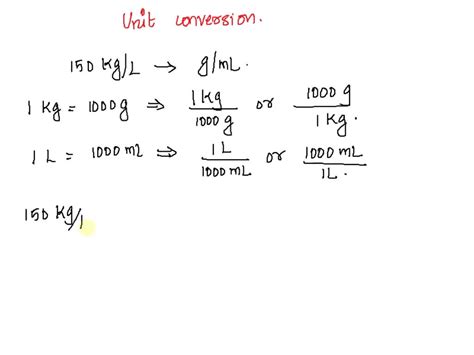 Unit conversion.
150 Kg/L → g/mL.
1 Kg = 1000g ⇒ 1 Kg / 1000 g or 1000 g / 1 Kg.
1 L = 1000 mL ⇒ 1 L / 1000 mL or 1000 mL / 1L.
150 Kg/L